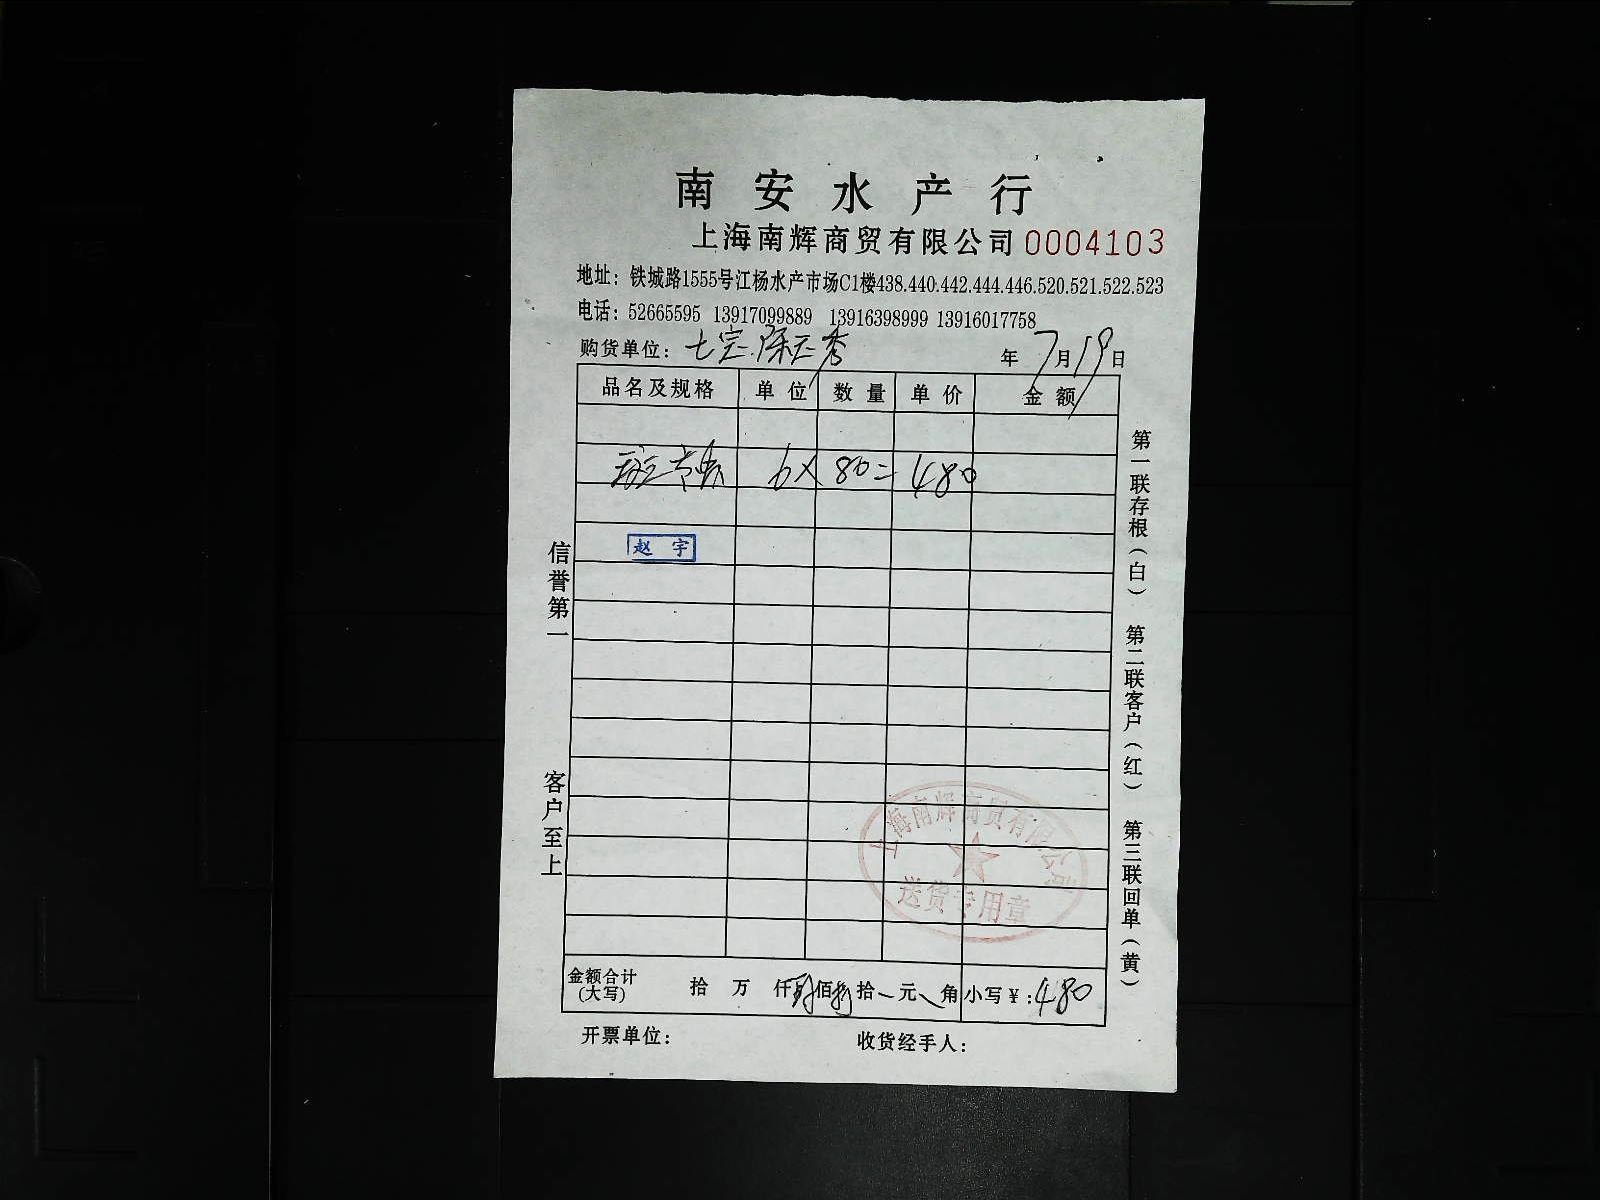 南安水产行
上海南辉商贸有限公司 0004103
地址：铁城路1555号江杨水产市场C1楼438.440.442.444.446.520.521.522.523
电话：52665595 13917099889 13916398999 13916017758
购货单位：七宝
年7月19日
品名及规格 单位 数量 单价 金额
6× 80= 480
赵宇
信誉第一
客户至上
第一联存根（白） 第二联客户（红） 第三联回单（黄）
上海南辉商贸有限公司
送货专用章
金额合计（大写） 拾 万 仟 肆 佰 捌 拾 元 角 小写￥：480
开票单位： 收货经手人：